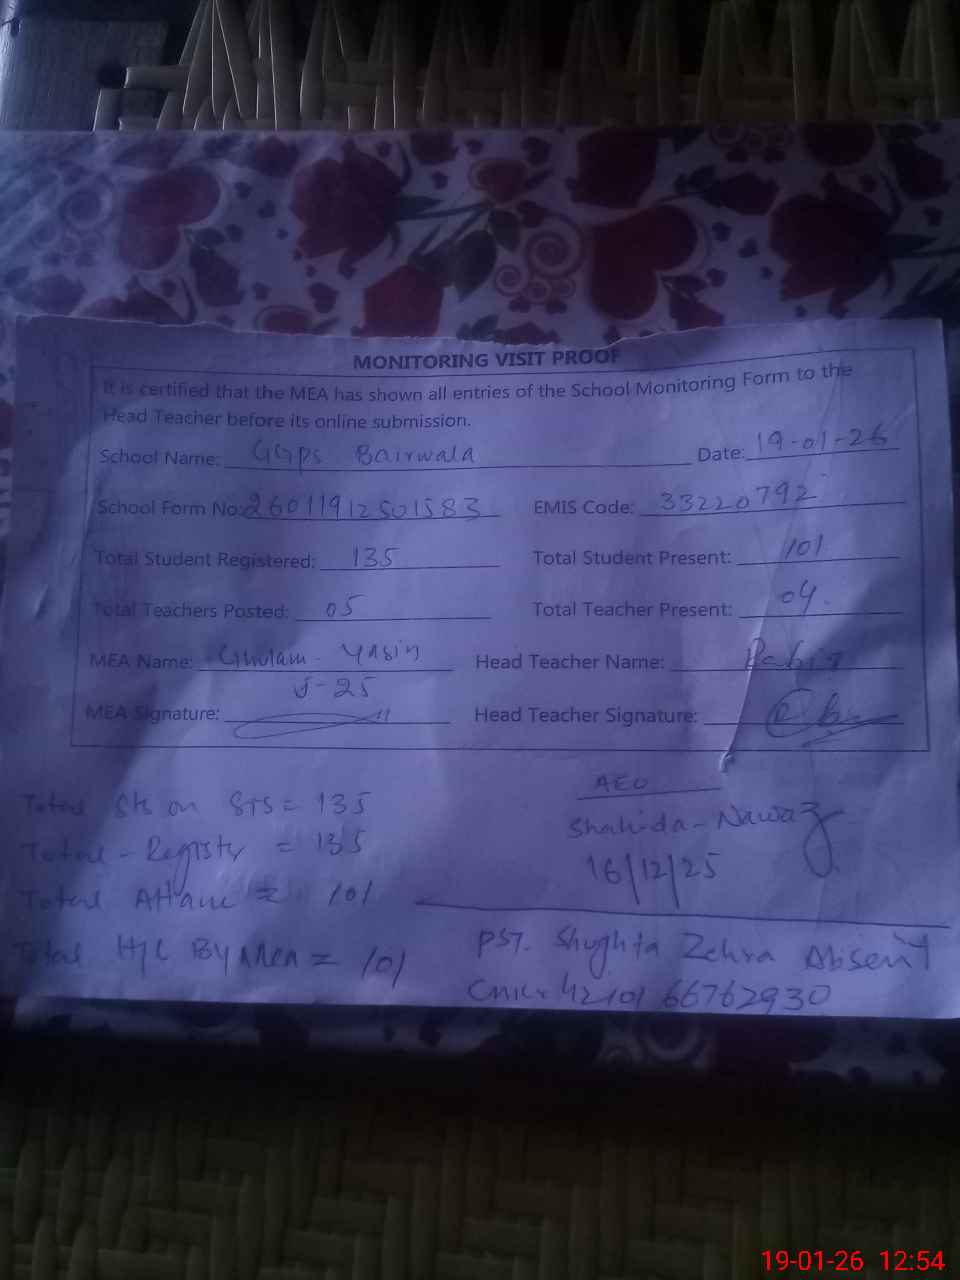 MONITORING VISIT PROOF
It is certified that the MEA has shown all entries of the School Monitoring Form to the
Head Teacher before its online submission.
School Name: GGPS Bairwala Date: 19-01-26
School Form No: 26011912501583 EMIS Code: 33220792
Total Student Registered: 135 Total Student Present: 101
Total Teachers Posted: 05 Total Teacher Present: 04.
MEA Name: Ghulam Yasin Head Teacher Name:
MEA Signature: Head Teacher Signature:
Total Sts on STS = 135
Total - = 135
Total = 101
Total H/C By Mea = 101
AEO
Shahida - Nawaz
16/12/25
PST. Zehra Absent
66762930
19-01-26 12:54